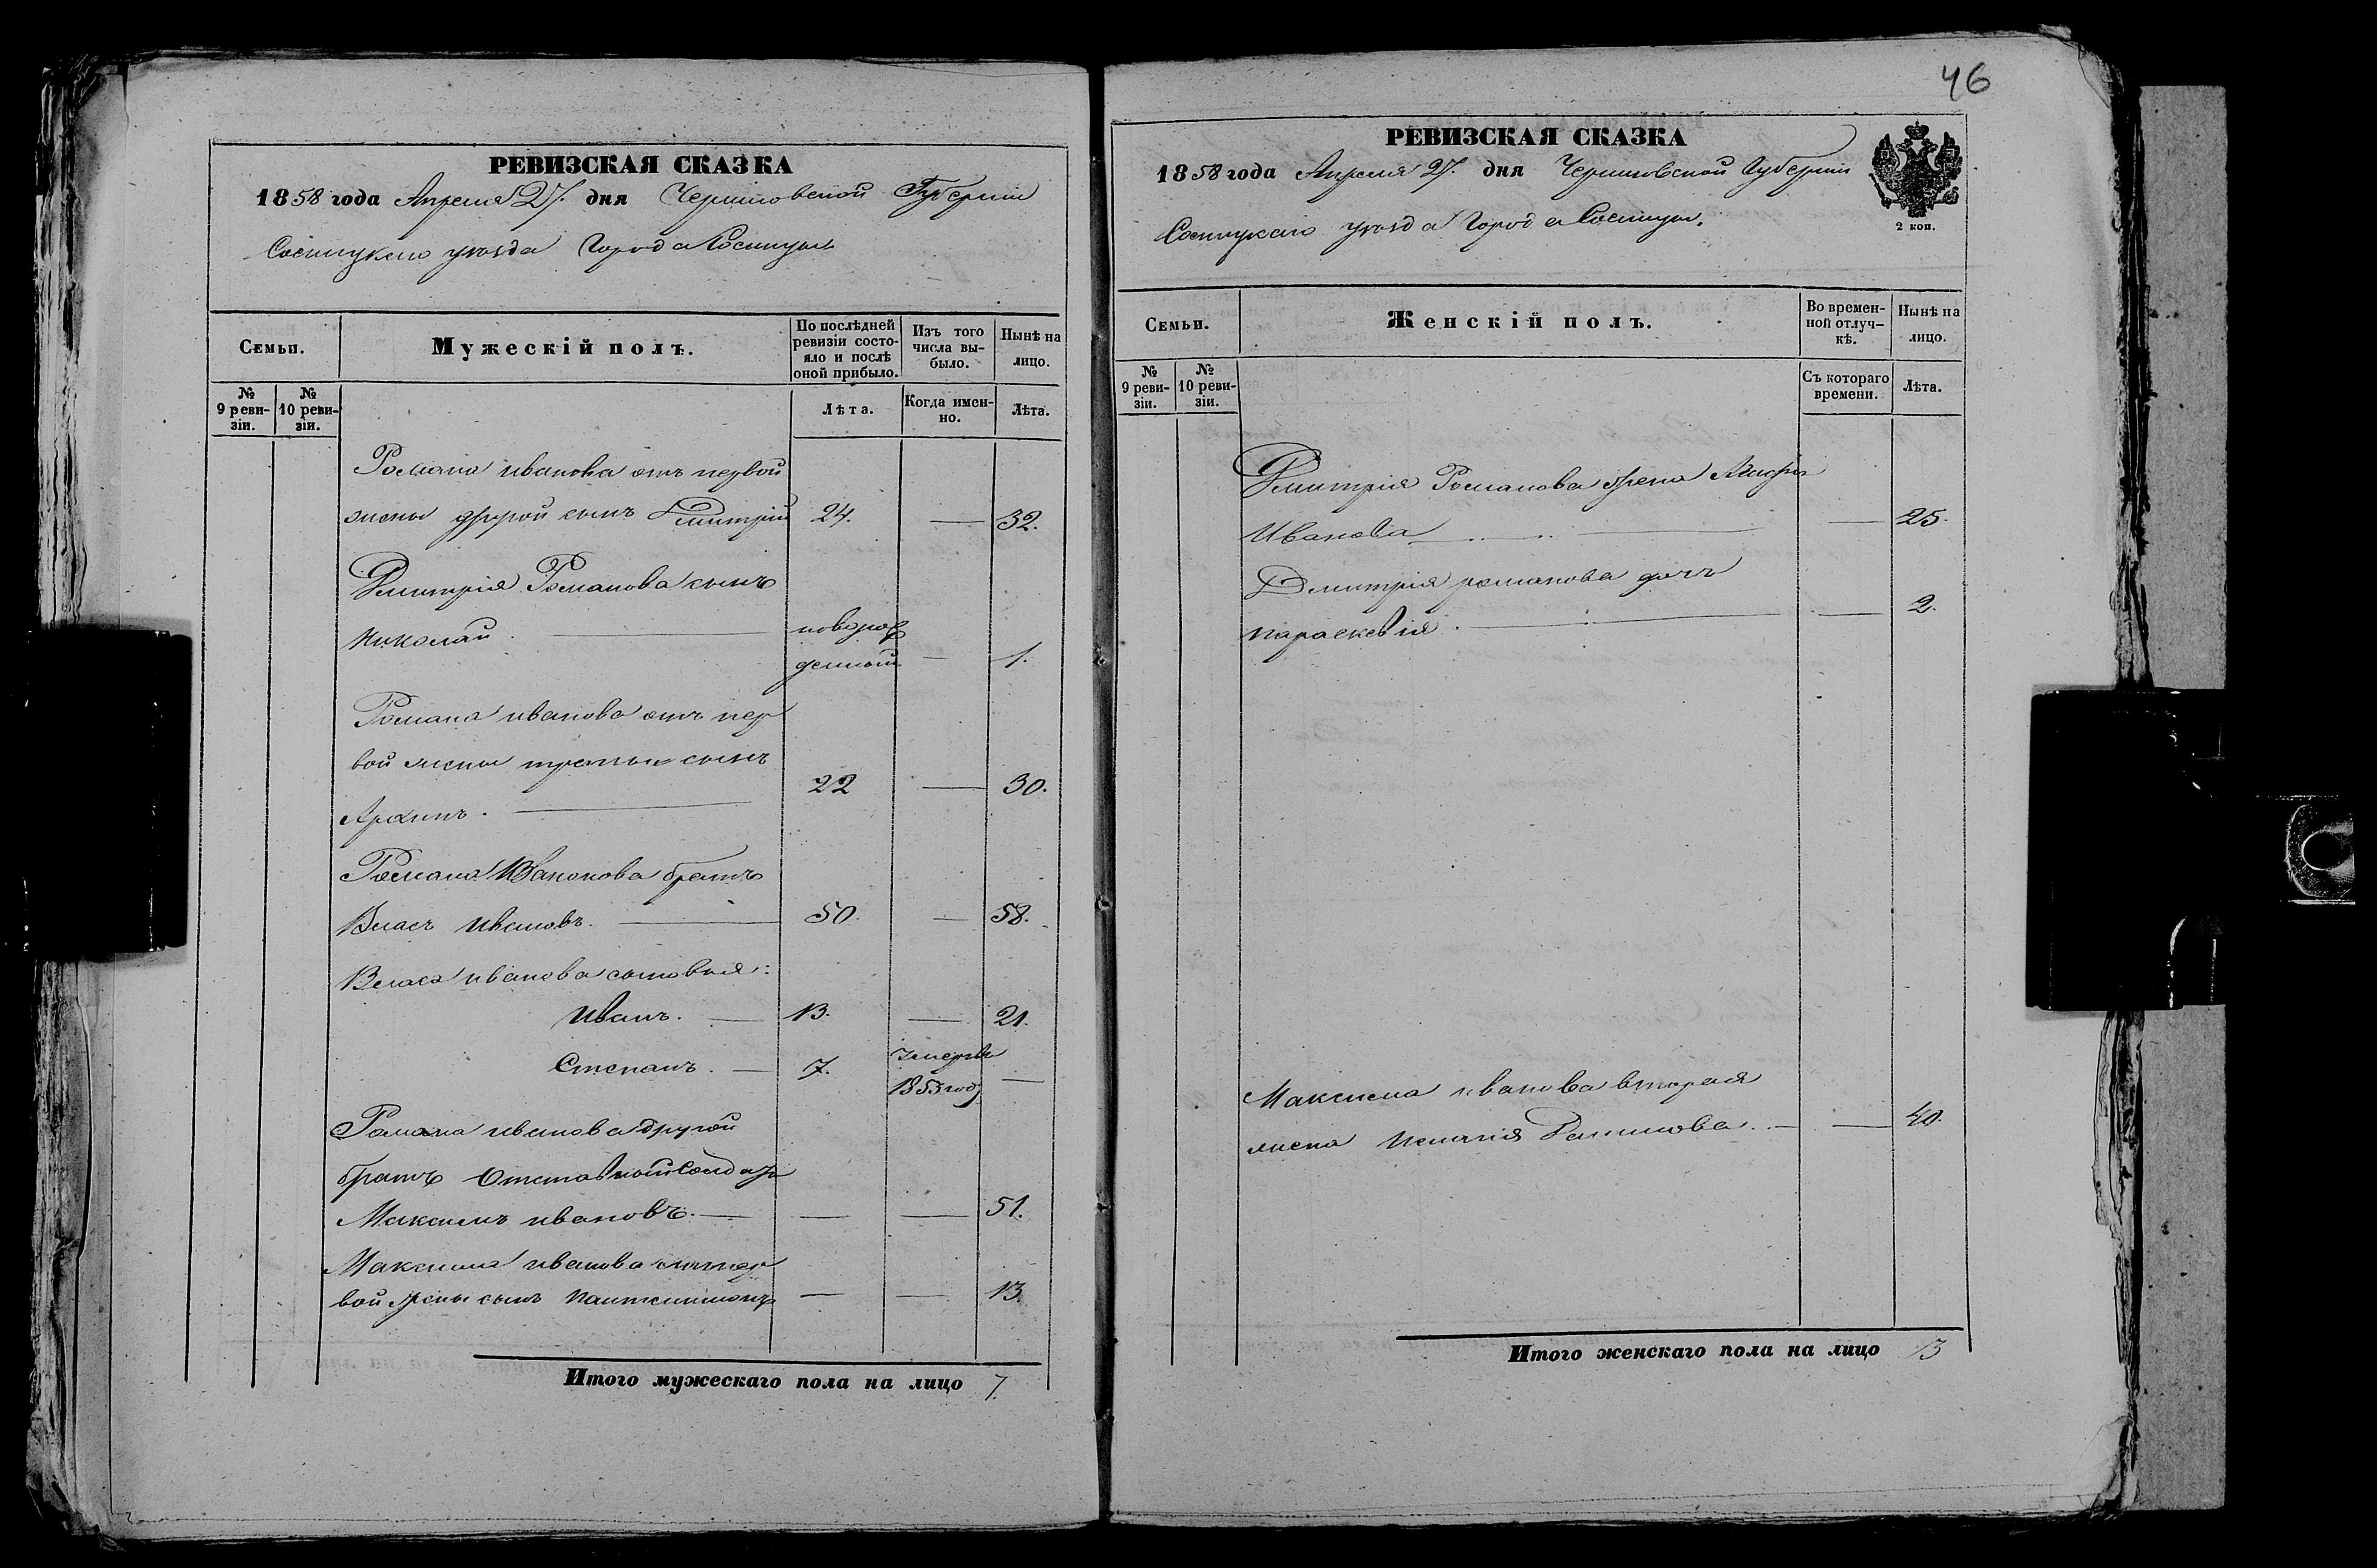 РЕВИЗСКАЯ СКАЗКА
1858 года Апреля 27. дня Черниговской Губерніи
Сосницкаго уѣзда Города Сосницы
Семьи.
Мужескій полъ.
По послѣдней ревизіи состояло и послѣ оной прибыло.
Изъ того числа выбыло.
Нынѣ на лицо.
№ 9 ревизіи.
№ 10 ревизіи.
Лѣта.
Когда именно.
Лѣта.
Романа иванова отъ первой
жены другой сынъ Дмитрій 24. — 32.
Дмитрія Романова сынъ
Николай. — новорож
денный — 1.
Романа иванова отъ пер
вой жены третій сынъ
Архипъ. — 22 — 30.
Романа Иванова братъ
Власъ Ивановъ. — 50. — 58.
Власа иванова сыновья:
Иванъ. — 13. — 21.
Степанъ. — 7. умеръ —
1853 год
Романа иванова другой
братъ Отставной Солдатъ
Максимъ ивановъ. — — — 51.
Максима иванова отъ пер
вой жены сынъ — — 13.
Итого мужескаго пола на лицо 7.
46
РЕВИЗСКАЯ СКАЗКА
1858 года Апреля 27. дня Черниговской Губерніи
Сосницкаго уѣзда Города Сосницы.
2 коп.
Семьи.
Женскій полъ.
Во временной отлучкѣ.
Нынѣ на лицо.
№ 9 ревизіи.
№ 10 ревизіи.
Съ котораго времени.
Лѣта.
Дмитрія Романова жена
Иванова — — 25.
Дмитрія романова дочь
параскевія. — — 2.
Максима иванова вторая
жена — — 40.
Итого женскаго пола на лицо 3